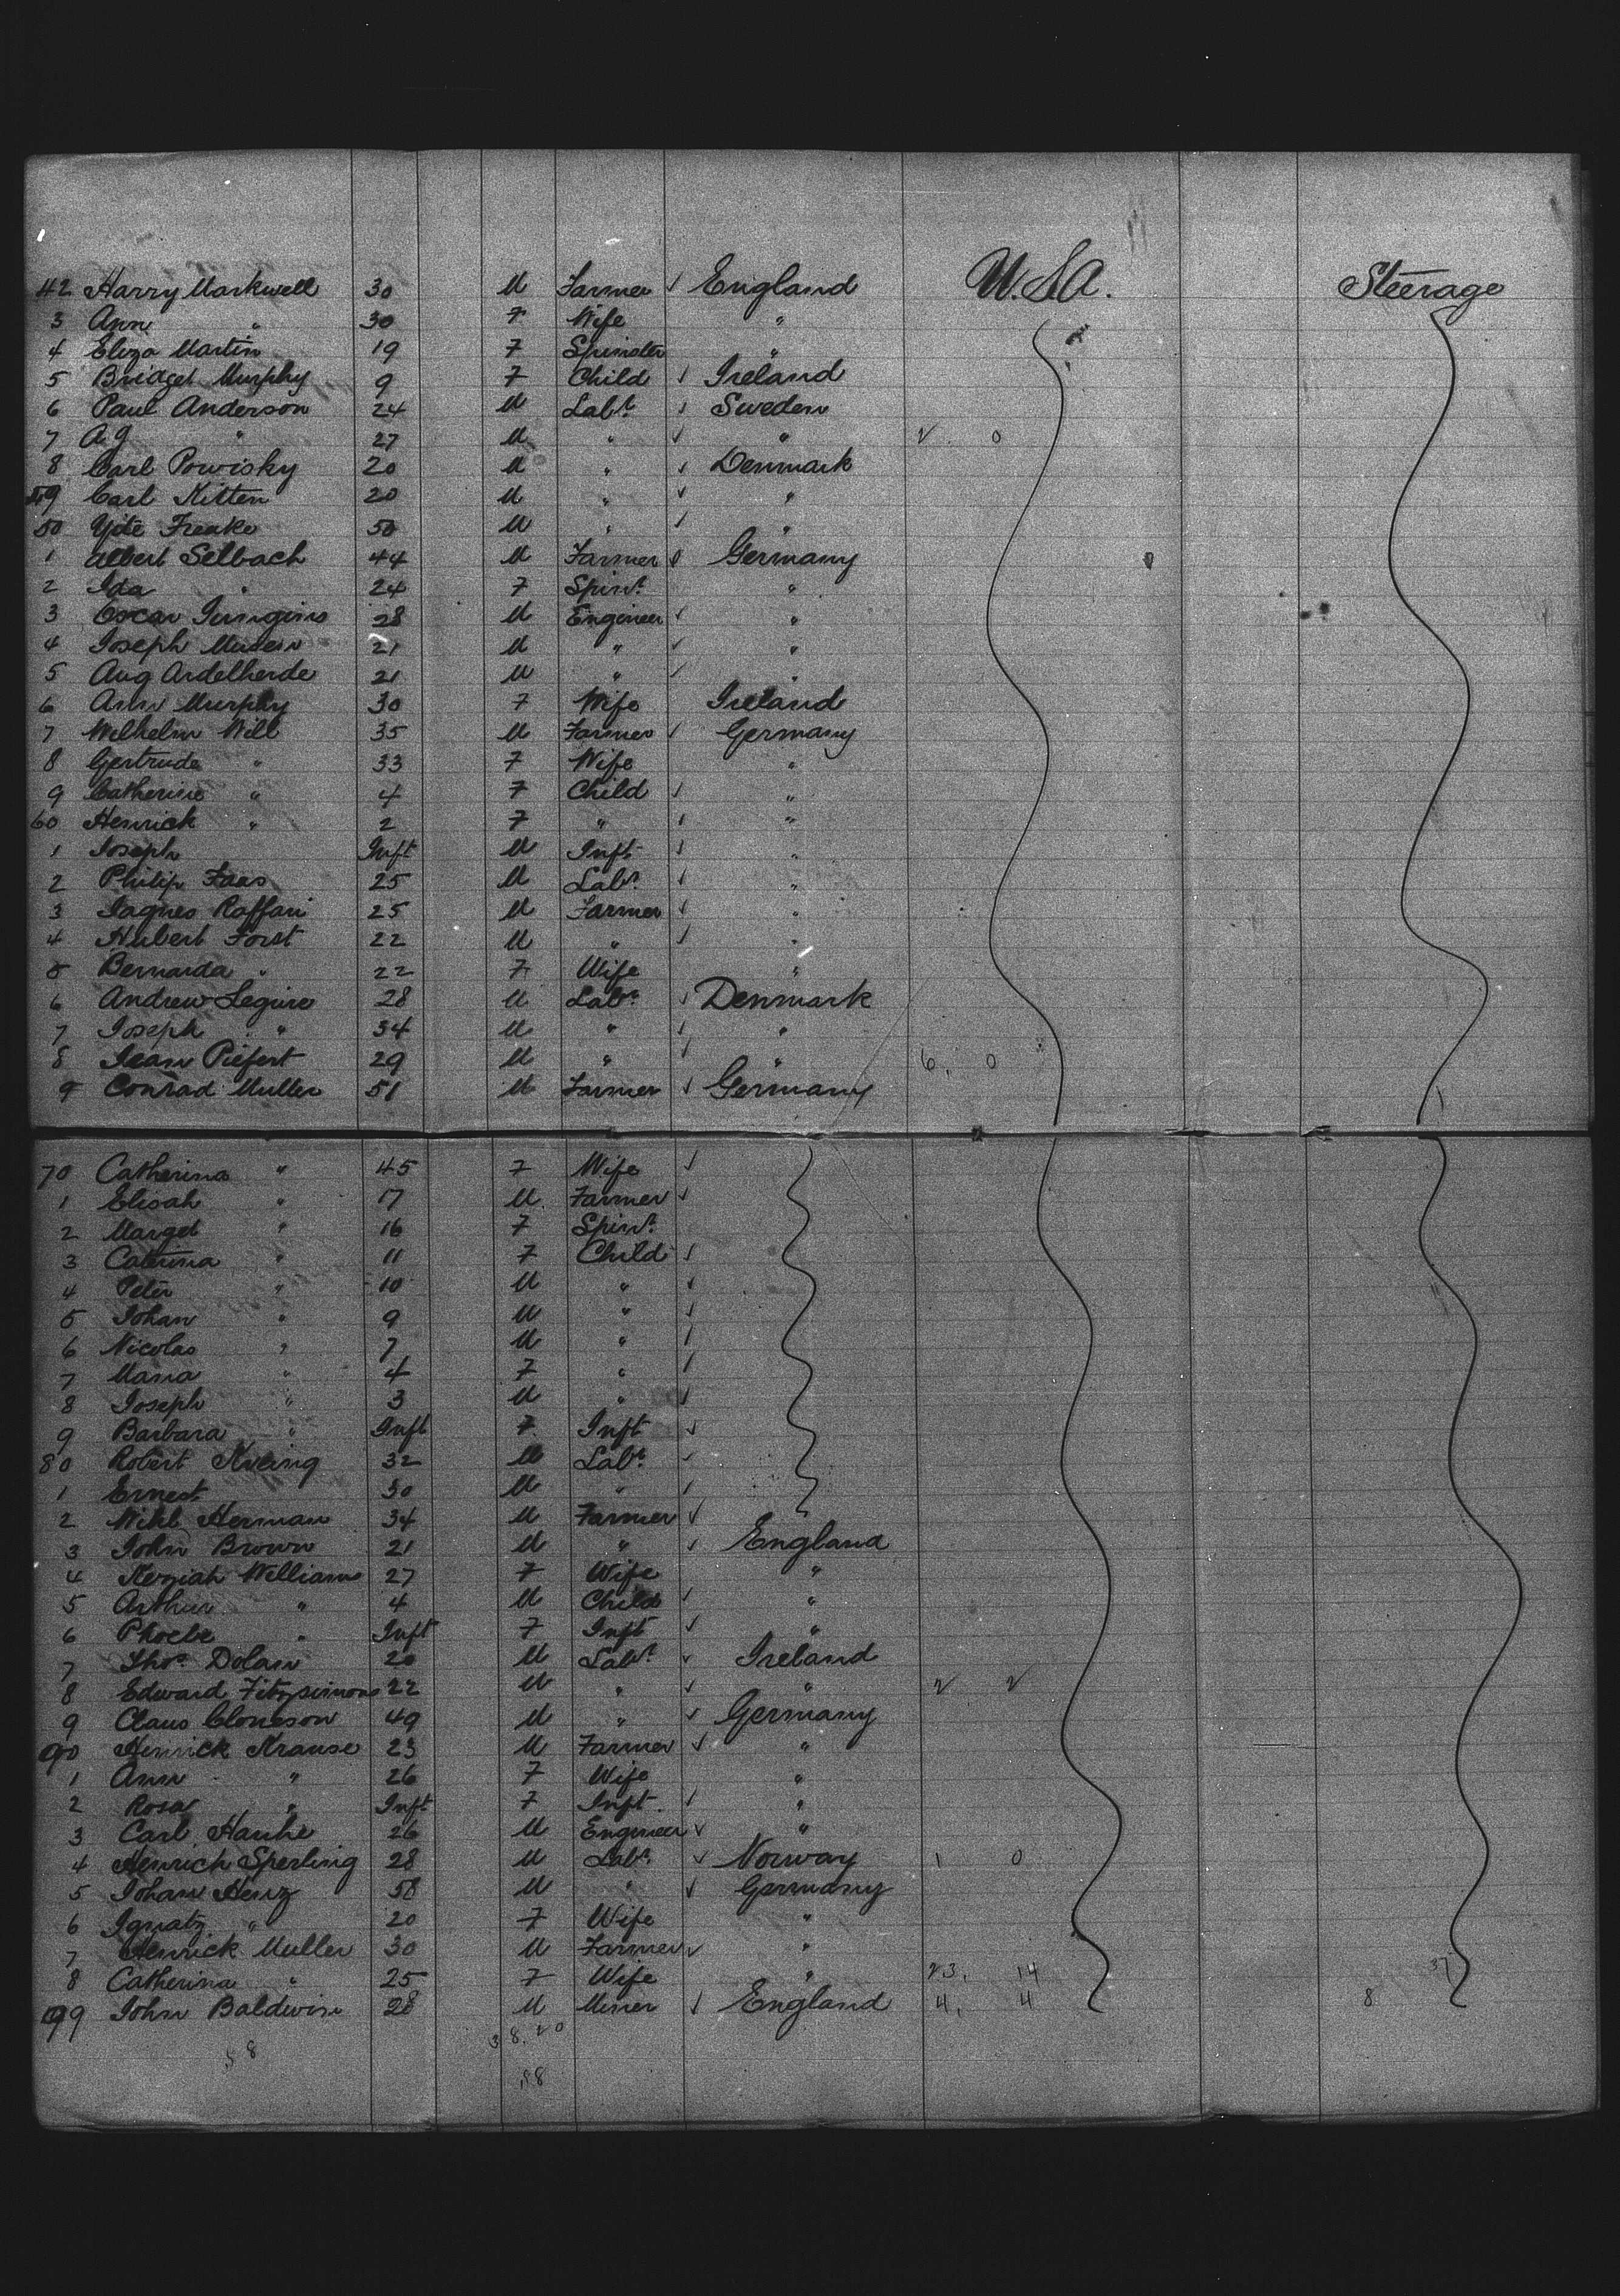 42 Harry Markwell 30 M Farmer ✓ England U.S.A. Steerage
3 Ann " 30 F Wife "
4 Eliza Martin 19 F Spinster "
5 Bridget Murphy 9 F Child ✓ Ireland
6 Paul Anderson 24 M Labr ✓ Sweden
7 A G " 27 M " ✓ " 2. 0
8 Carl Powisky 20 M " ✓ Denmark
49 Carl Kitten 20 M " ✓ "
50 50 M " ✓ "
1 Albert Selbach 44 M Farmer Germany
2 Ida " 24 F Spinr "
3 Oscar 28 M Engineer ✓ "
4 Joseph 21 M " ✓ "
5 Aug Ardelherde 21 M " ✓ "
6 Ann Murphy 30 F Wife Ireland
7 Wilhelm Will 35 M Farmer ✓ Germany
8 Gertrude " 33 F Wife "
9 Catherine " 4 F Child ✓ "
60 Henrick " 2 F " ✓ "
1 Joseph Inft M Inft ✓ "
2 Philip Faas 25 M Labr ✓ "
3 Jagnes Raffari 25 M Farmer ✓ "
4 Hubert Forst 22 M " ✓ "
5 Bernarda " 22 F Wife "
6 Andrew Leguire 28 M Labr ✓ Denmark
7 Joseph " 34 M " ✓ "
8 Jean Piefert 29 M " ✓ " 6. 0
9 Conrad Muller 51 M Farmer ✓ Germany
70 Catherina " 45 F Wife ✓
1 Elisah " 17 M Farmer ✓
2 Marget " 16 F Spinr
3 Catrina " 11 F Child ✓
4 Peter " 10 M " ✓
5 Johan " 9 M " ✓
6 Nicolas " 7 M " ✓
7 Maria " 4 F " ✓
8 Joseph " 3 M " ✓
9 Barbara " Inft F Inft ✓
80 Robert 32 M Labr ✓
1 Ernest 30 M " ✓
2 Wihl Herman 34 M Farmer ✓
3 John Brown 21 M " ✓ England
4 Keziah Williams 27 F Wife "
5 Arthur " 4 M Child ✓ "
6 Phoebe " Inft F Inft ✓ "
7 Thos Dolan 20 M Labr ✓ Ireland
8 Edward Fitzsimons 22 M " ✓ " 2 2
9 Claus Clonsson 49 M " ✓ Germany
90 Henrick Krause 23 M Farmer ✓ "
1 Ann " 26 F Wife "
2 Rosa " Inft F Inft ✓ "
3 Carl Hanhe 26 M Engineer ✓ "
4 Henrich Sperling 28 M Labr ✓ Norway 1 0
5 Johan Henz 58 M " ✓ Germany
6 Ignatz " 20 F Wife "
7 Henrick Muller 30 M Farmer ✓ "
8 Catherina " 25 F Wife " 23. 14 37
99 John Baldwin 28 M Miner ✓ England 4. 4 8
38. 20
58
58